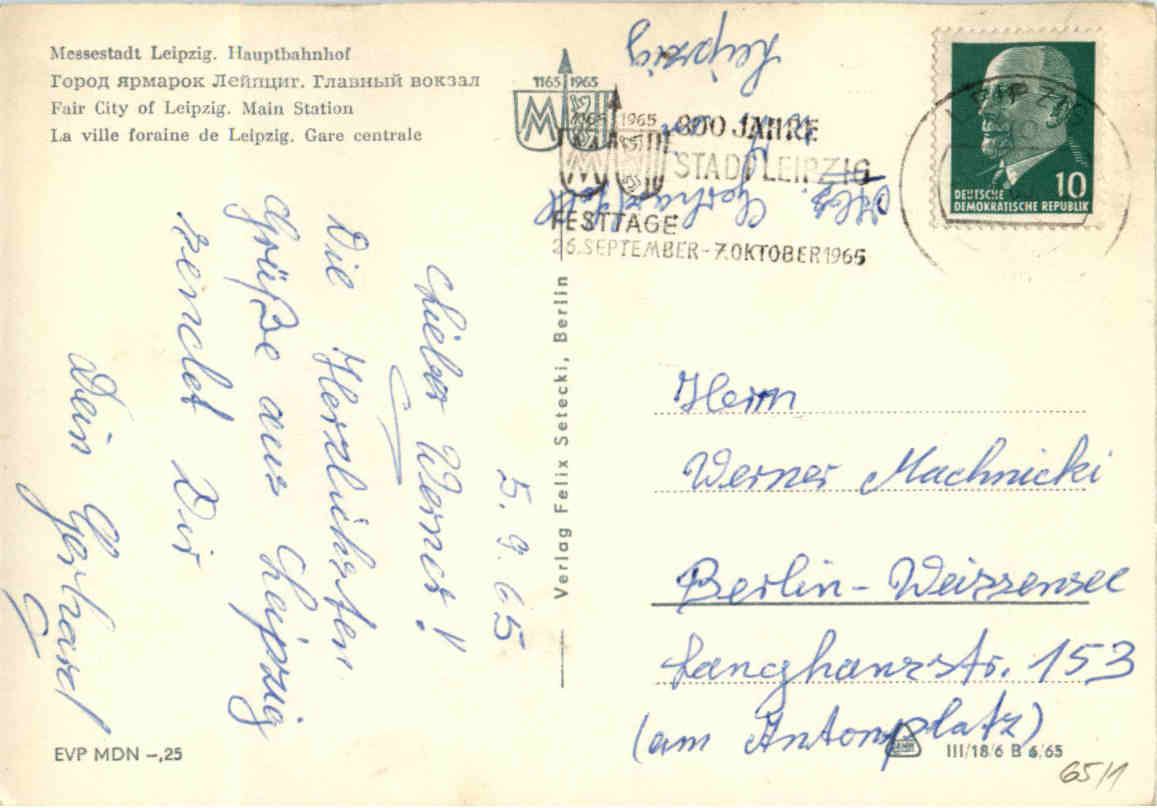 Messestadt Leipzig. Hauptbahnhof
Город ярмарок Лейпциг. Главный вокзал
Fair City of Leipzig. Main Station
La ville foraine de Leipzig. Gare centrale
5. 9. 65
Lieber Werner!
Die Herzlichsten
Grüße aus Leipzig
sendet Dir
Dein Gerhard
EVP MDN -,25
Verlag Felix Setecki, Berlin
Leipzig
1165 1965
1965
800 JAHRE
STADT LEIPZIG
FESTTAGE
26. SEPTEMBER - 7. OKTOBER 1965
DEUTSCHE
DEMOKRATISCHE REPUBLIK
10
Herrn
Werner Machnicki
Berlin - Weissensee
Langhansstr. 153
(am Antonplatz)
III/18/6 B 6/65
65/1